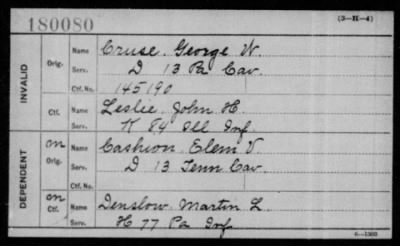 180080
(3-H-4)
INVALID
Orig. Name Cruse, George W.
Serv. D 13 Pa Cav.
Ctf. No. 145190
Ctf. Name Leslie, John H.
Serv. K 84 Ill Inf.
DEPENDENT
m Orig. Name Cashion, Elem V.
Serv. D 13 Tenn Cav.
Ctf. No.
m Ctf. Name Denslow, Martin L.
Serv. H 77 Pa Inf.